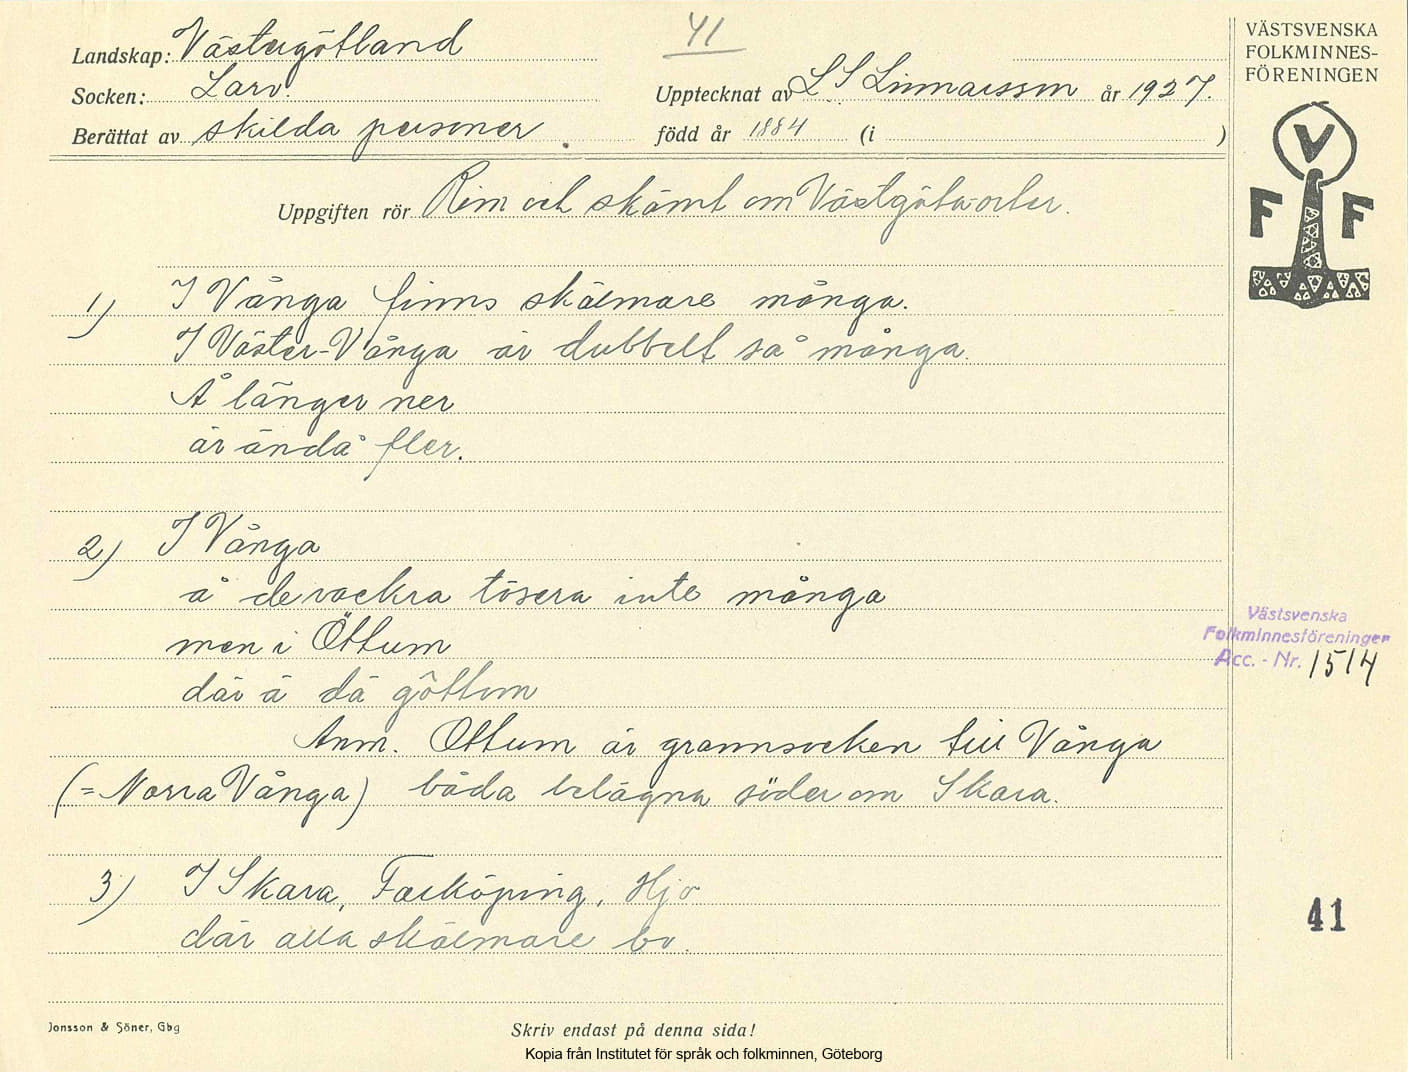 41
Landskap: Västergötland
Socken: Larv.
Berättat av skilda personer.
Upptecknat av L S Linnarsson år 1927.
född år 1884 (i )
Uppgiften rör Rim och skämt om Västgötaorter.
1) I Vånga finns skälmare många.
I Väster-Vånga är dubbelt så många.
Å länger ner
är ändå fler.
2) I Vånga
ä de vackra tösera inte många
men i Öttum
där ä dä göttom
Anm. Öttum är grannsocken till Vånga
(=Norra Vånga) båda belägna söder om Skara.
3) I Skara, Falköping, Hjo
där alla skälmare bo.
VÄSTSVENSKA
FOLKMINNES-
FÖRENINGEN
V
F F
Västsvenska
Folkminnesföreningen
Acc. - Nr. 1514
41
Jonsson & Söner, Gbg
Skriv endast på denna sida!
Kopia från Institutet för språk och folkminnen, Göteborg